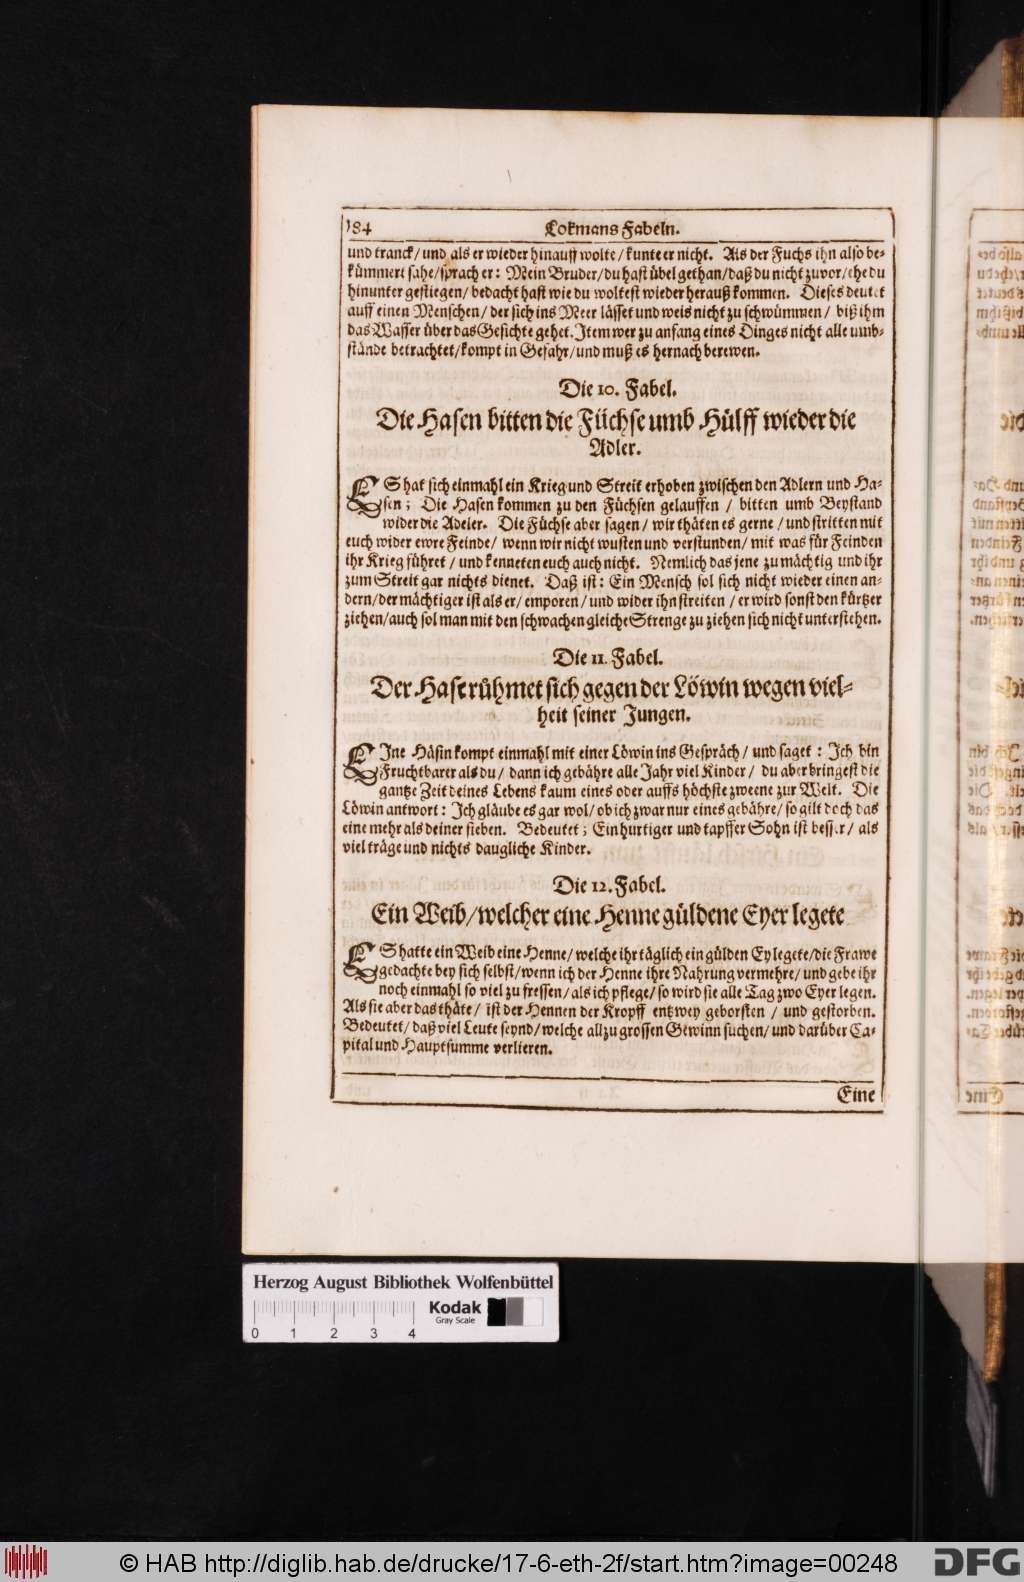 184
Lokmans Fabeln.
und tranck / und als er wieder hinauff wolte / kunte er nicht. Als der Fuchs ihn also be-
kümmert sahe / sprach er : Mein Bruder / du hast übel gethan / daß du nicht zuvor / ehe du
hinunter gestiegen / bedacht hast wie du woltest wieder herauß kommen. Dieses deutet
auff einen Menschen / der sich ins Meer lässet und weis nicht zu schwümmen / biß ihm
das Wasser über das Gesichte gehet. Item wer zu anfang eines Dinges nicht alle umb-
stände betrachtet / kompt in Gefahr / und muß es hernach berewen.
Die 10. Fabel.
Die Hasen bitten die Füchse umb Hülff wieder die
Adler.
ES hat sich einmahl ein Krieg und Streit erhoben zwischen den Adlern und Ha-
sen ; Die Hasen kommen zu den Füchsen gelauffen / bitten umb Beystand
wider die Adeler. Die Füchse aber sagen / wir thäten es gerne / und stritten mit
euch wider ewre Feinde / wenn wir nicht wusten und verstunden / mit was für Feinden
ihr Krieg führet / und kenneten euch auch nicht. Nemlich das jene zu mächtig und ihr
zum Streit gar nichts dienet. Daß ist : Ein Mensch sol sich nicht wieder einen an-
dern / der mächtiger ist als er / emporen / und wider ihn streiten / er wird sonst den kürtzer
ziehen / auch sol man mit den schwachen gleiche Strenge zu ziehen sich nicht unterstehen.
Die 11. Fabel.
Der Hase rühmet sich gegen der Löwin wegen viel-
heit seiner Jungen.
EIne Häsin kompt einmahl mit einer Löwin ins Gespräch / und saget : Ich bin
Fruchtbarer als du / dann ich gebähre alle Jahr viel Kinder / du aber bringest die
gantze Zeit deines Lebens kaum eines oder auffs höchste zweene zur Welt. Die
Löwin antwort : Ich gläube es gar wol / ob ich zwar nur eines gebähre / so gilt doch das
eine mehr als deiner sieben. Bedeutet ; Ein hurtiger und tapffer Sohn ist besser / als
viel träge und nichts daugliche Kinder.
Die 12. Fabel.
Ein Weib / welcher eine Henne güldene Eyer legete
ES hatte ein Weib eine Henne / welche ihr täglich ein gülden Ey legete / die Frawe
gedachte bey sich selbst / wenn ich der Henne ihre Nahrung vermehre / und gebe ihr
noch einmahl so viel zu fressen / als ich pflege / so wird sie alle Tag zwo Eyer legen.
Als sie aber das thäte / ist der Hennen der Kropff entzwey geborsten / und gestorben.
Bedeutet / daß viel Leute seynd / welche allzu grossen Gewinn suchen / und darüber Ca-
pital und Hauptsumme verlieren.
Eine
Herzog August Bibliothek Wolfenbüttel
Kodak
Gray Scale
0 1 2 3 4
© HAB http://diglib.hab.de/drucke/17-6-eth-2f/start.htm?image=00248
DFG